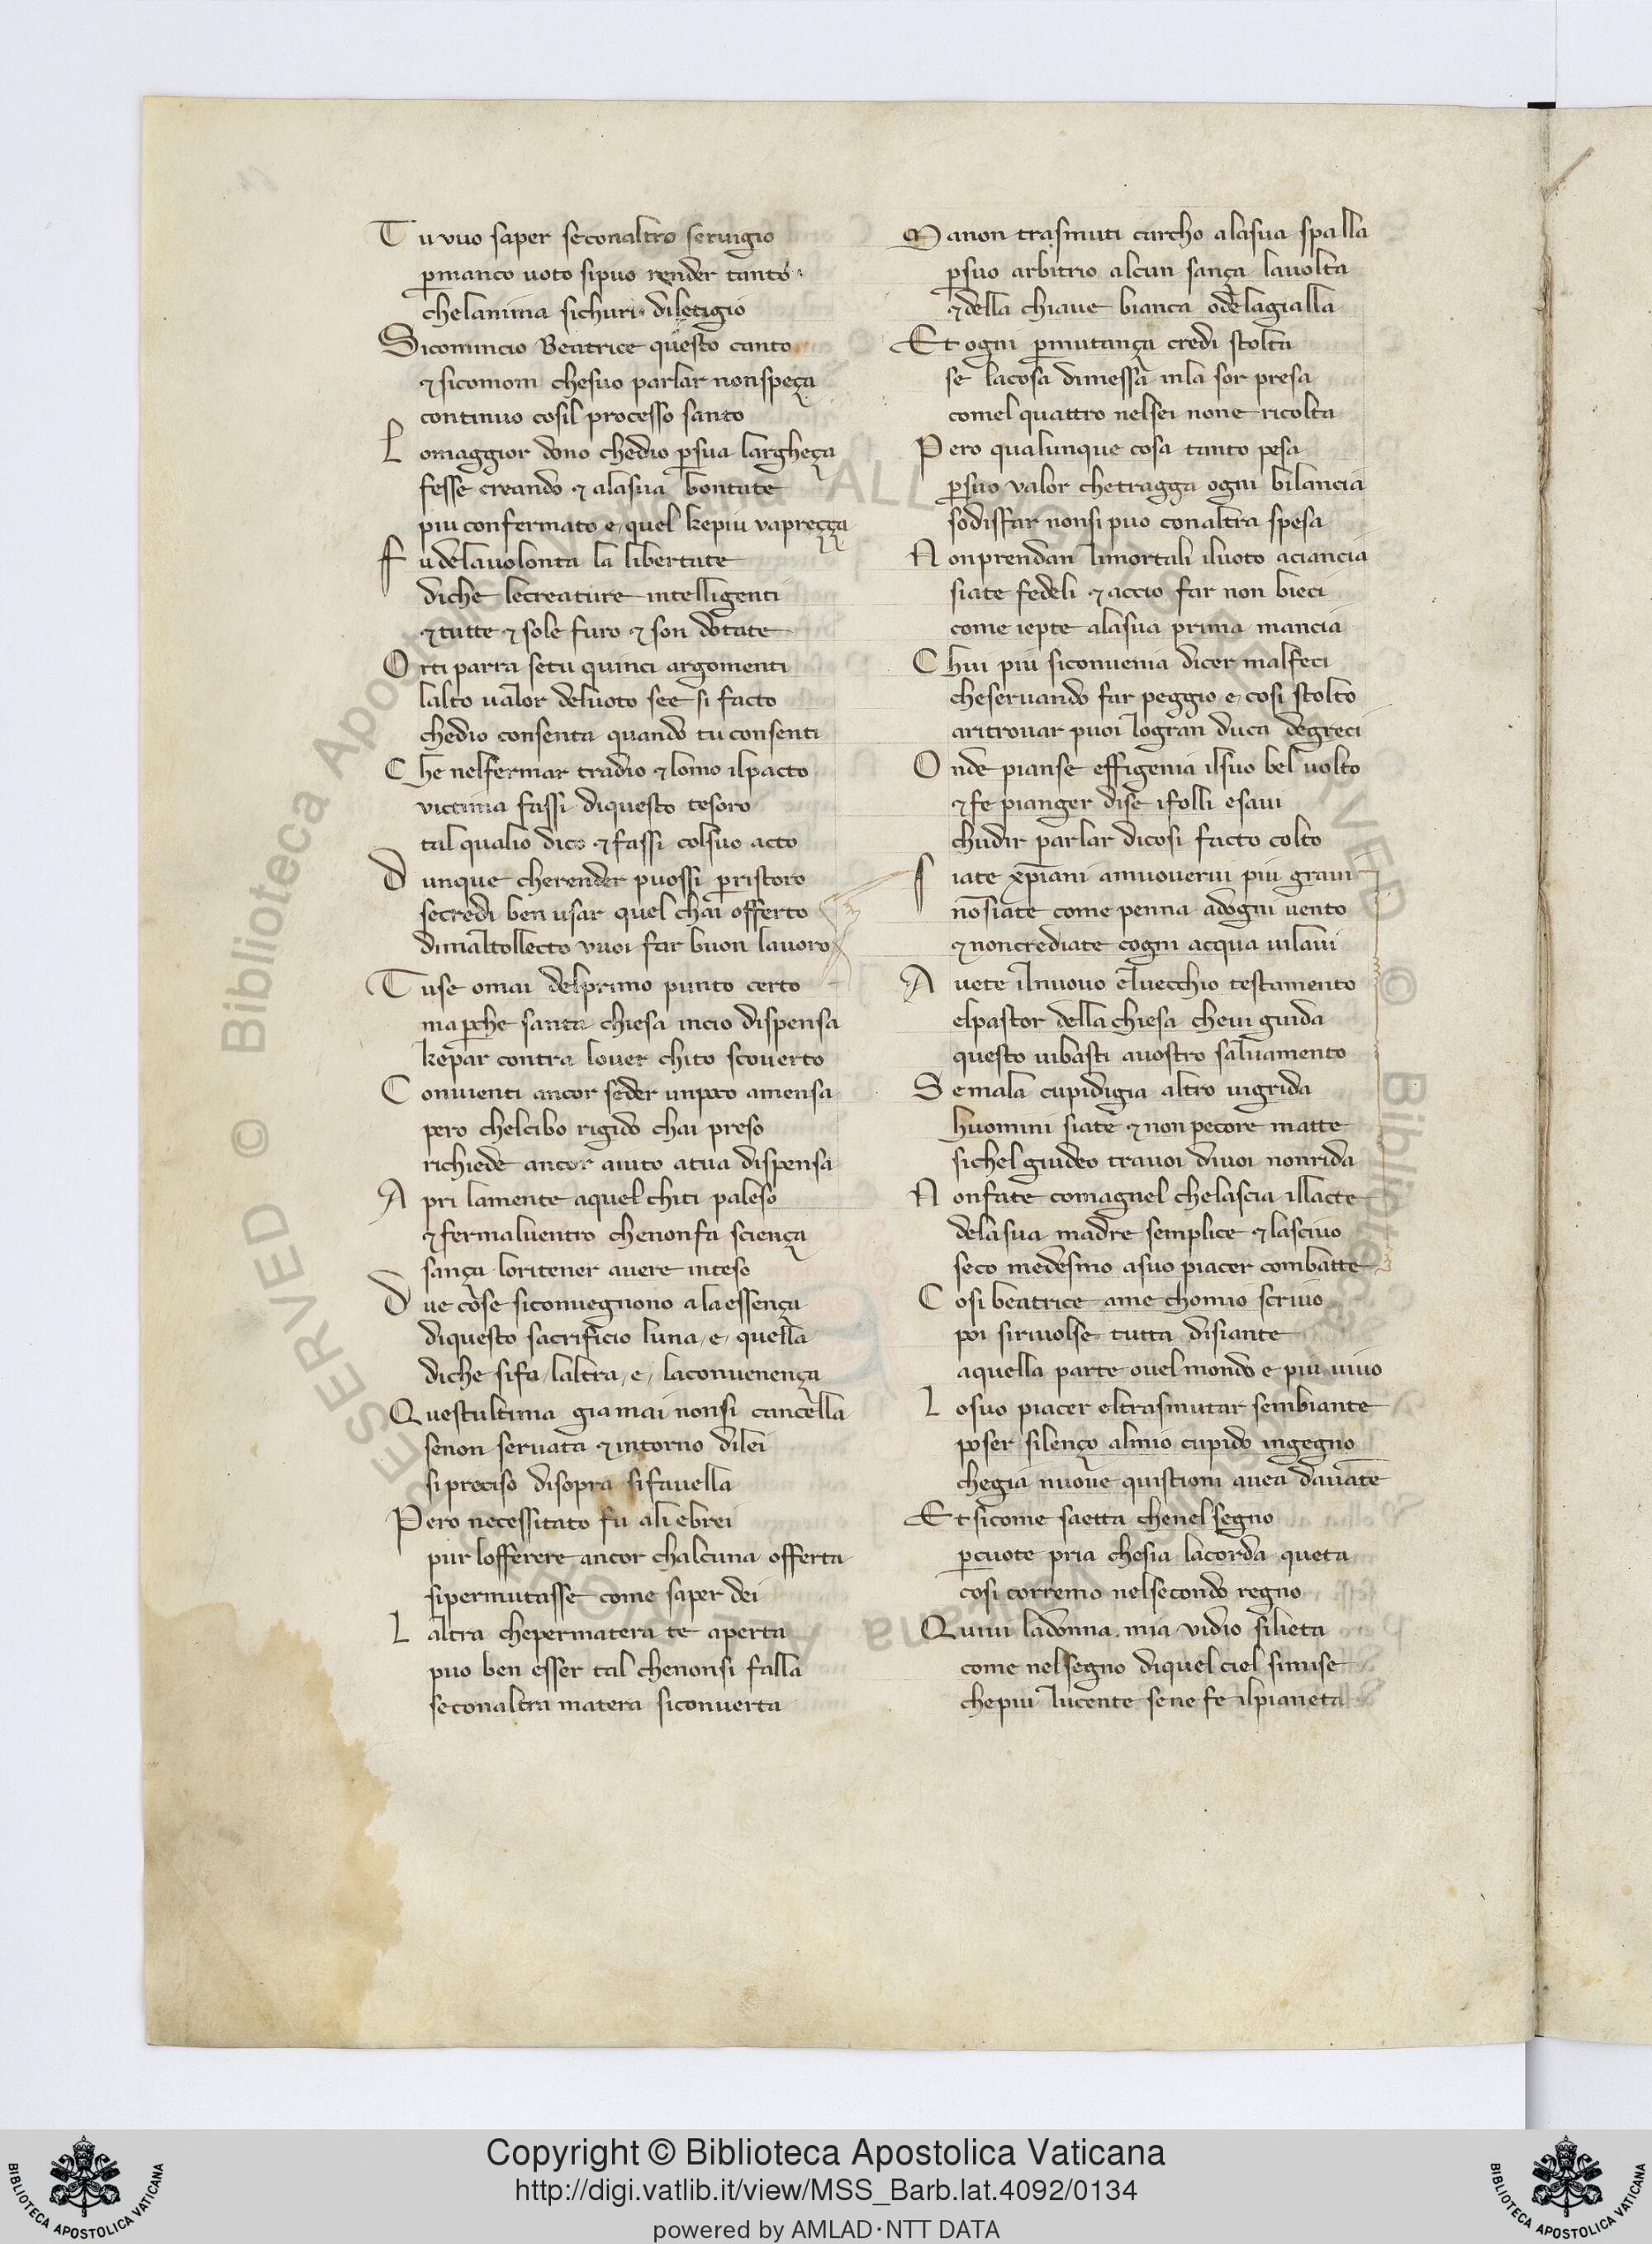 Tu vuo saper seconaltro seruigio
ꝑmanco uoto sipuo render tanto
chelanima sichuri diletigio
Sicomincio Beatrice questo canto
⁊ sicomom chesuo parlar nonspeça
continuo cosil processo santo
Lomaggior dono chedio ꝑsua largheça
fesse creando ⁊ alasua bontate
piu confermato e quel kepiu vapreçça
Fudelauolonta la libertate
diche lecreature intelligenti
⁊ tutte ⁊ sole furo ⁊ son dotate
Orti parra setu quinci argomenti
lalto ualor deluoto see si facto
chedio consenta quando tu consenti
Che nelfermar tradio ⁊ lomo ilpacto
victima fassi diquesto tesoro
tal qualio dico ⁊ fassi colsuo acto
Dunque cherender puossi ꝑristoro
secredi ben usar quel chai offerto
dimaltollecto vuoi far buon lauoro
Tuse omai delprimo punto certo
ma ꝑche santa chiesa incio dispensa
kepar contra louer chito scouerto
Conuienti ancor seder unpoco amensa
pero chelcibo rigido chai preso
richiede ancor aiuto atua dispensa
Apri lamente aquel chiti paleso
⁊ fermaluentro chenonfa sciença
sança loritener auere inteso
Due cose siconuegnono ala essença
diquesto sacrificio luna e quella
diche sifa laltra e laconuenença
Questultima giamai nonsi cancella
senon seruata ⁊ intorno dilei
si preciso disopra sifauella
Pero necessitato fu ali ebrei
pur lofferere ancor chalcuna offerta
sipermutasse come saper dei
Laltra chepermatera te aperta
puo ben esser tal chenonsi falla
seconaltra matera siconuerta
Manon trasmuti carcho alasua spalla
ꝑsuo arbitrio alcun sança lauolta
⁊ della chiaue bianca odelagialla
Et ogni ꝑmutança credi stolta
se lacosa dimessa inla sor presa
comel quattro nelsei none ricolta
Pero qualunque cosa tanto pesa
ꝑsuo valor chetragga ogni bilancia
sodisfar nonsi puo conaltra spesa
Nonprendan limortali iluoto aciancia
siate fedeli ⁊ accio far non bieci
come iepte alasua prima mancia
Chui piu siconuenia dicer malfeci
cheseruando far peggio e cosi stolto
aritrouar puoi logran duca degreci
Onde pianse effigenia ilsuo bel uolto
⁊ fe pianger dise ifolli esaui
chudir parlar dicosi facto colto
Siate xp̄iani amuouerui piu graui
nōsiate come penna adogni uento
⁊ noncrediate cogni acqua uilaui
Auete ilnuouo eluecchio testamento
elpastor della chiesa cheui guida
questo uibasti auostro saluamento
Semala cupidigia altro uigrida
huomini siate ⁊ non pecore matte
sichel giudeo trauoi diuoi nonrida
Nonfate comagnel chelascia illacte
delasua madre semplice ⁊ lasciuo
seco medesmo asuo piacer combatte
Cosi beatrice ame chomio scriuo
poi siriuolse tutta disiante
aquella parte ouel mondo e piu uiuo
Losuo piacer eltrasmutar sembiante
poser silenço almio cupido ingegno
chegia nuoue quistioni auea dauāte
Et sicome saetta chenel segno
ꝑcuote pria chesia lacorda queta
cosi corremo nelsecondo regno
Quiui ladonna mia vidio silieta
come nelsegno diquel ciel simise
chepiu lucente sene fe ilpianeta
Copyright © Biblioteca Apostolica Vaticana
http://digi.vatlib.it/view/MSS_Barb.lat.4092/0134
powered by AMLAD·NTT DATA
BIBLIOTECA APOSTOLICA VATICANA
BIBLIOTECA APOSTOLICA VATICANA